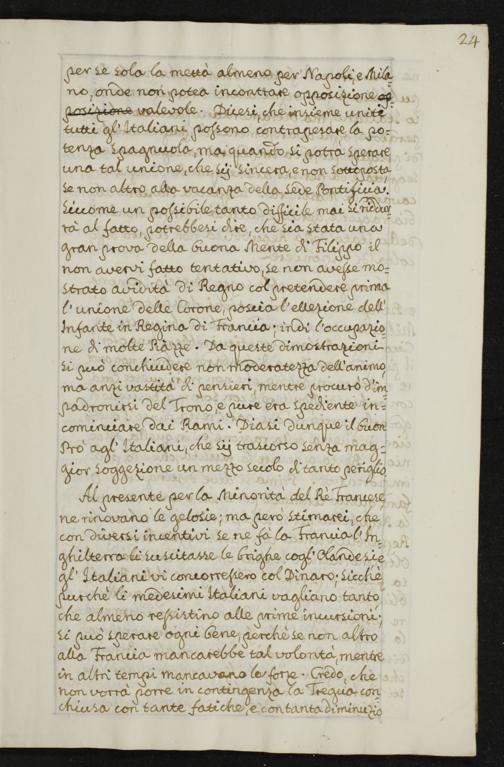 24
per se sola la mettà almeno per Napoli, e Mila-
no, onde non potea incontrare opposizione op
posizione valevole. Dicesi, che insieme unite
tutti gl'Italiani possono contrapesare la po-
tenza Spagnuola, ma quando si potrà sperare
una tal unione, che sij sincera, e non sottoposta
se non altro alla vacanza della Sede Pontificia.
Siccome un possibile tanto difficile mai si ridur
rà al fatto, potrebbesi dire, che sia stata una
gran prova della buona Mente di Filippo il
non avervi fatto tentativo, se non avesse mo-
strato avidità di Regno col pretendere prima
l'unione delle Corone, poscia l'ellezione dell'
Infante in Regina di Francia, indi l'occupazio-
ne di molte Piazze. Da queste dimostrazioni
si può conchiudere non moderatezza dell'animo,
ma anzi vastità di pensieri, mentre procurò d'im-
padronirsi del Trono, e pure era spediente in-
cominciare dai Rami. Diasi dunque il buon
Prò agl'Italiani, che sij trascorso senza mag-
gior soggezione un mezzo secolo di tanto periglio
Al presente per la Minorità del Rè Francese
ne rinovano le gelosie; ma però stimarei, che
con diversi incentivi se ne fà la Francia l'In-
ghilterra li suscitasse le brighe cogl'Olandesi, e
gl'Italiani vi concorressero col Dinaro; Sicchè
purchè li medesimi Italiani vagliano tanto
che almeno ressistino alle prime incursioni,
si può sperare ogni bene, perchè se non altro
alla Francia mancarebbe tal volontà, mentre
in altri tempi mancavano le forze. Credo, che
non vorrà porre in contingenza la Tregua con
chiusa con tante fatiche, e con tanta diminuzio